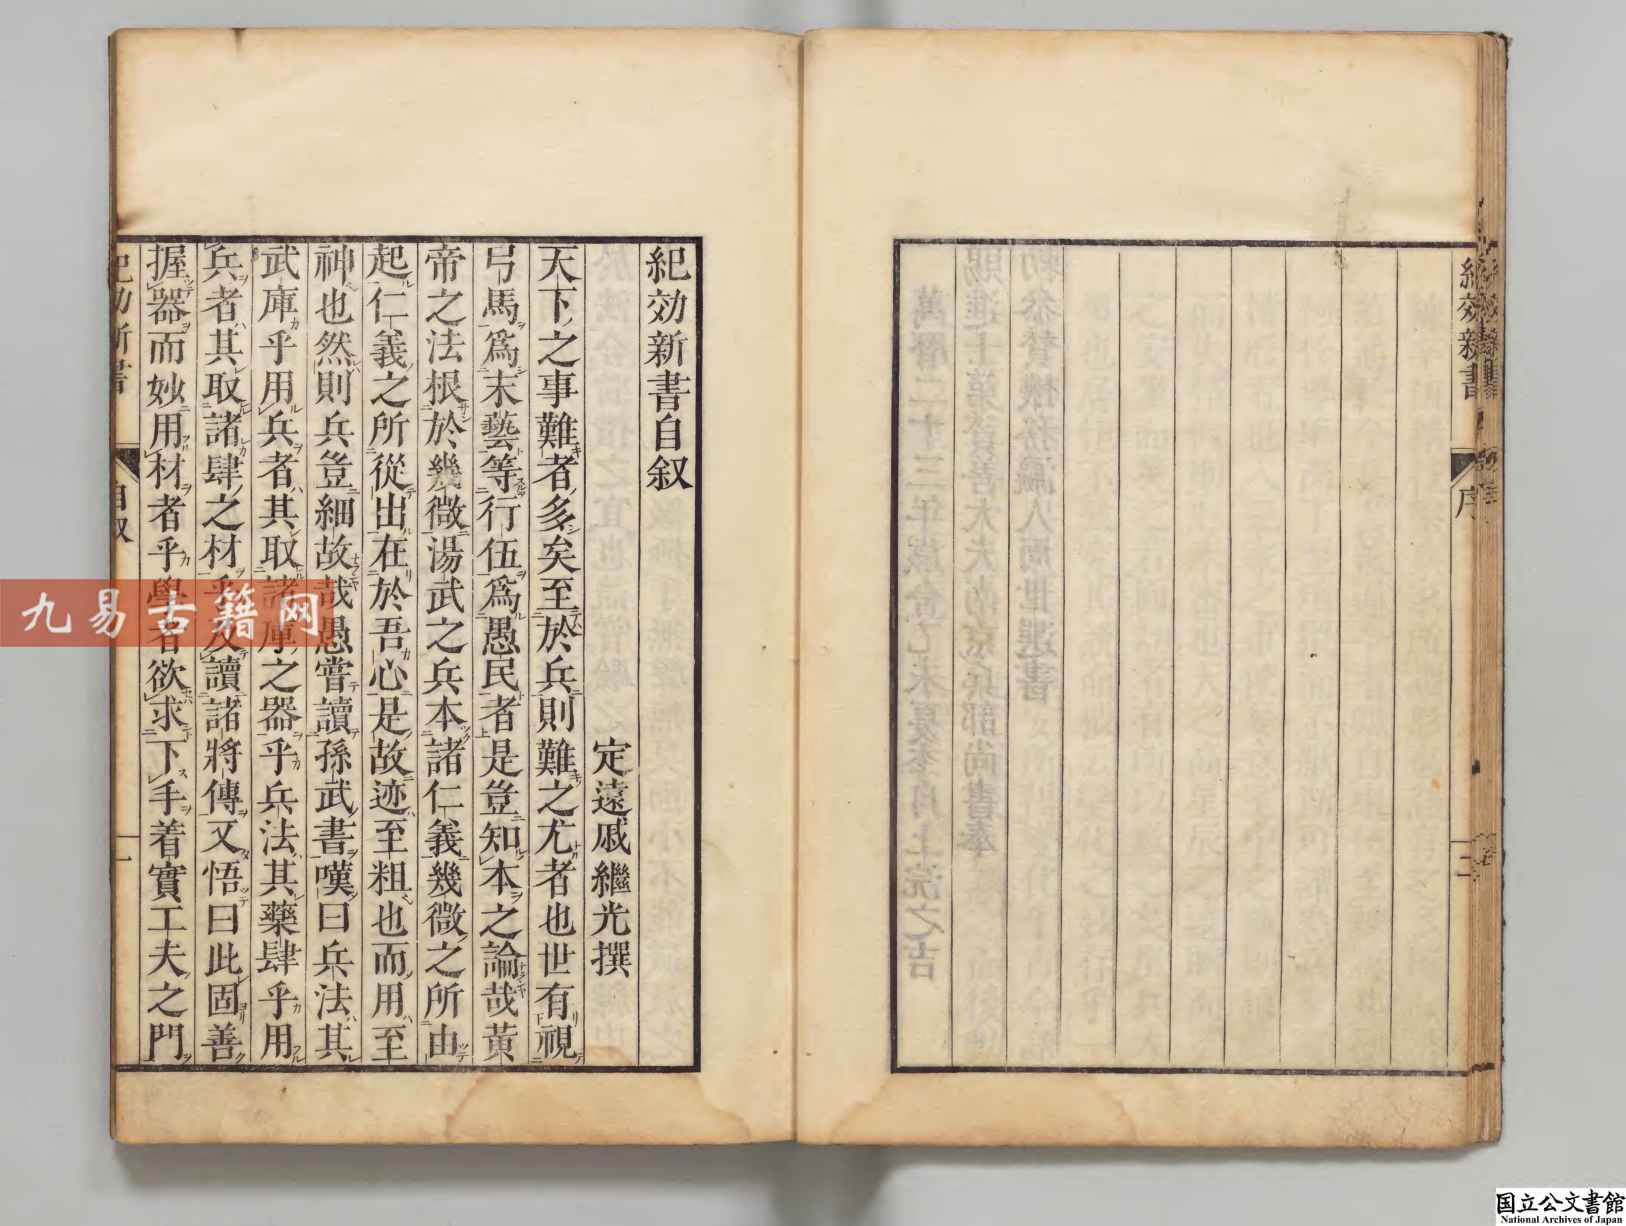 紀効新書
序
二
紀効新書自叙
定遠戚繼光撰
天下之事難者多矣至於兵則難之尤者也世有視
弓馬爲末藝等行伍爲愚民者是豈知本之論哉黃
帝之法根於幾微湯武之兵本諸仁義幾微之所由
起仁義之所從出在於吾心是故迹至粗也而用至
神也然則兵豈細故哉愚嘗讀孫武書嘆曰兵法其
武庫乎用兵者其取諸庫之器乎兵法其藥肆乎用
兵者其取諸肆之材乎及讀諸將傳又悟曰此固善
握器而妙用材者乎學者欲求下手着實工夫之門
紀効新書
自叙
一
九易古籍网
国立公文書館
National Archives of Japan